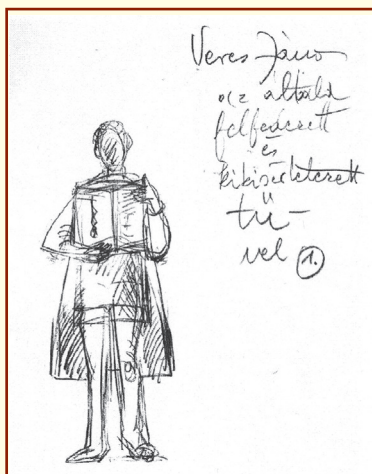 Veres János
az általa
felfedezett
és
kikísérletezett
tű-
vel 1.